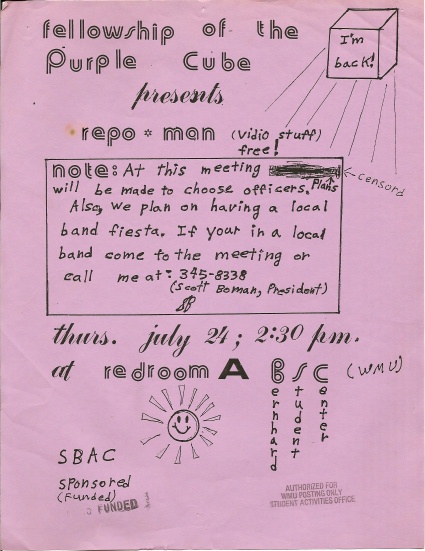 fellowship of the
Purple Cube
I'm
back!
presents
repo * man (vidio stuff)
free!
note: At this meeting
←censord
will be made to choose officers. Plans
Also, we plan on having a local
band fiesta. If your in a local
band come to the meeting or
call me at: 345-8338
(Scott Boman, President)
SB
thurs. july 24; 2:30 pm.
at redroom A BSC (WMU)
Bernhard
Student
Center
SBAC
Sponsored
(Funded)
FUNDED
AUTHORIZED FOR
WMU POSTING ONLY
STUDENT ACTIVITIES OFFICE